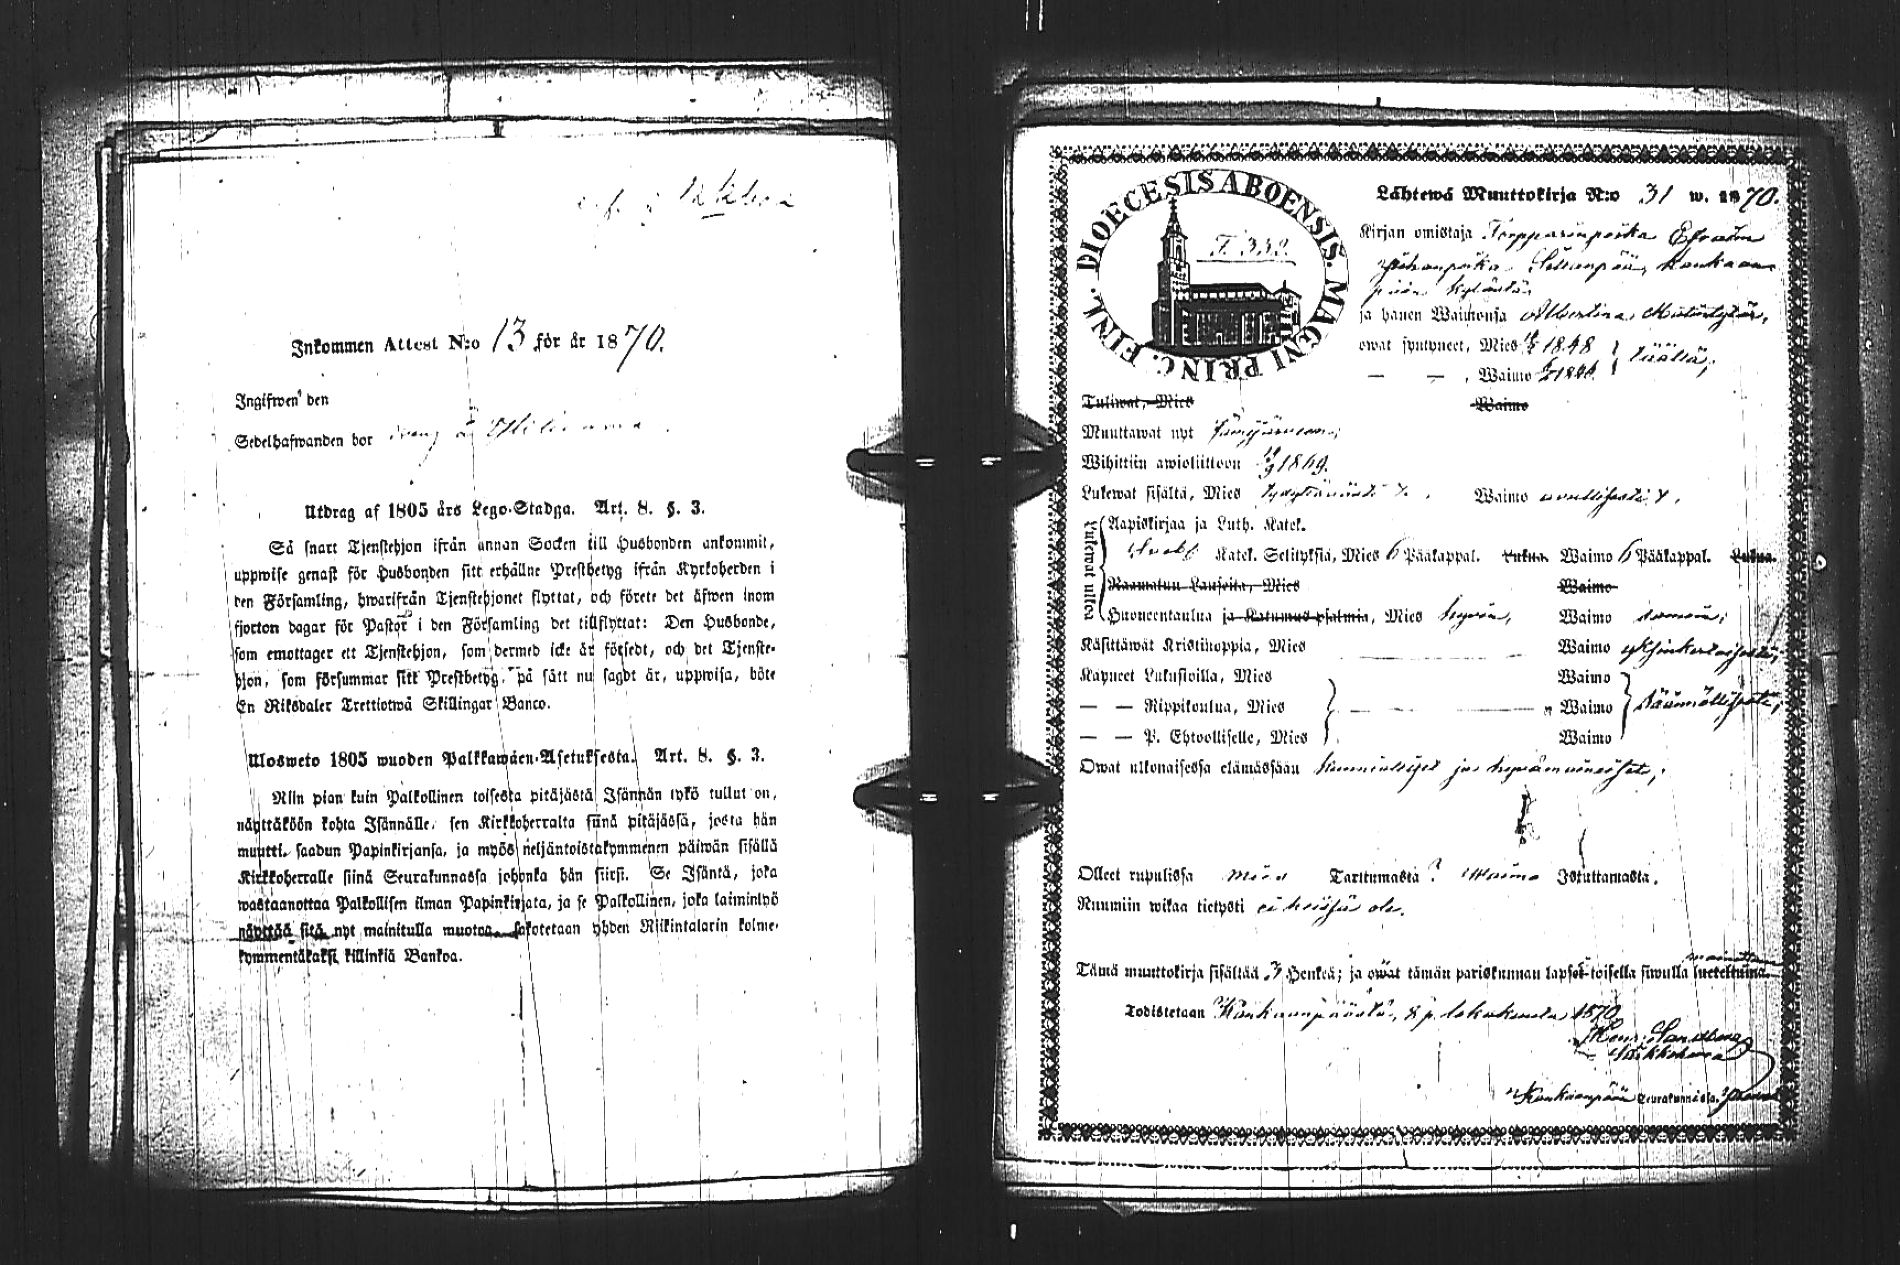 Inkommen Attest N:o 13 för år 1870.
Ingifwen den
Sedelhafwanden bor
Utdrag af 1805 års Lego-Stadga. Art. 8. §. 3.
Så snart Tjenstehjon ifrån annan Socken till Husbonden ankommit,
uppwise genast för Husbonden sitt erhållne Prestbetyg ifrån Kyrkoherden i
den Församling, hwarifrån Tjenstehjonet flyttat, och förete det äfwen inom
fjorton dagar för Pastor i den Församling det tillflyttat: Den Husbonde,
som emottager ett Tjenstehjon, som dermed icke är försedt, och det Tjenste-
hjon, som försummar sitt Prestbetyg, på sätt nu sagdt är, uppwisa, böte
En Riksdaler Trettiotwå Skillingar Banco.
Uloswеto 1805 wuoden Palkkawäen-Asetuksesta. Art. 8. §. 3.
Niin pian kuin Palkollinen toisesta pitäjästä Isännän tykö tullut on,
näyttäköön kohta Isännälle, sen Kirkkoherralta siinä pitäjässä, josta hän
muutti, saadun Papinkirjansa, ja myös neljäntoistakymmenen päiwän sisällä
Kirkkoherralle siinä Seurakunnassa johonka hän siirsi. Se Isäntä, joka
wastaanottaa Palkollisen ilman Papinkirjata, ja se Palkollinen, joka laiminlyö
näyttää sitä nyt mainitulla muotoa, sakotetaan yhden Riikintalarin kolme-
kymmentäkaksi killinkiä Bankoa.
DIOECESIS ABOENSIS. MAGNI PRINC. FINL.
T. 332.
Lähtewä Muuttokirja N:o 31 w. 1870.
Kirjan omistaja Torpparinpoika Efraim
Juhanpoika Kankaan
pään kylästä
ja hänen Waimonsa Albertina
owat syntyneet, Mies 1848 täältä;
— — , Waimo
Tuliwat, Mies Waimo
Muuttawat nyt Jämijärween;
Wihittiin awioliittoon 1869.
Lukewat sisältä, Mies Waimo
Lukewat ulkoa
Aapiskirjaa ja Luth. Katek.
Katek. Selityksiä, Mies 6 Pääkappal. Lukua. Waimo 6 Pääkappal. Lukua.
Raamatun Lauseita, Mies Waimo
Huoneentaulua ja Katumus psalmia, Mies hywin, Waimo samoin;
Käsittäwät Kristinoppia, Mies Waimo yksinkertaisesti;
Käyneet Lukusioilla, Mies Waimo
— — Rippikoulua, Mies Waimo säännöllisesti;
— — P. Ehtoollisella, Mies Waimo
Owat ulkonaisessa elämässään kunnialliset ja hywämaineiset;
Olleet rupulissa mies Tarttumasta? Waimo Istuttamasta.
Ruumiin wikaa tietysti ei heissä ole.
Tämä muuttokirja sisältää 3 Henkeä; ja owat tämän pariskunnan lapset toisella siwulla lueteltuina.
mainittu
Todistetaan Kankaanpäästä, 8 p. lokakuuta 1870
Sandberg
Kirkkoherra
Kankaanpään Seurakunnassa.